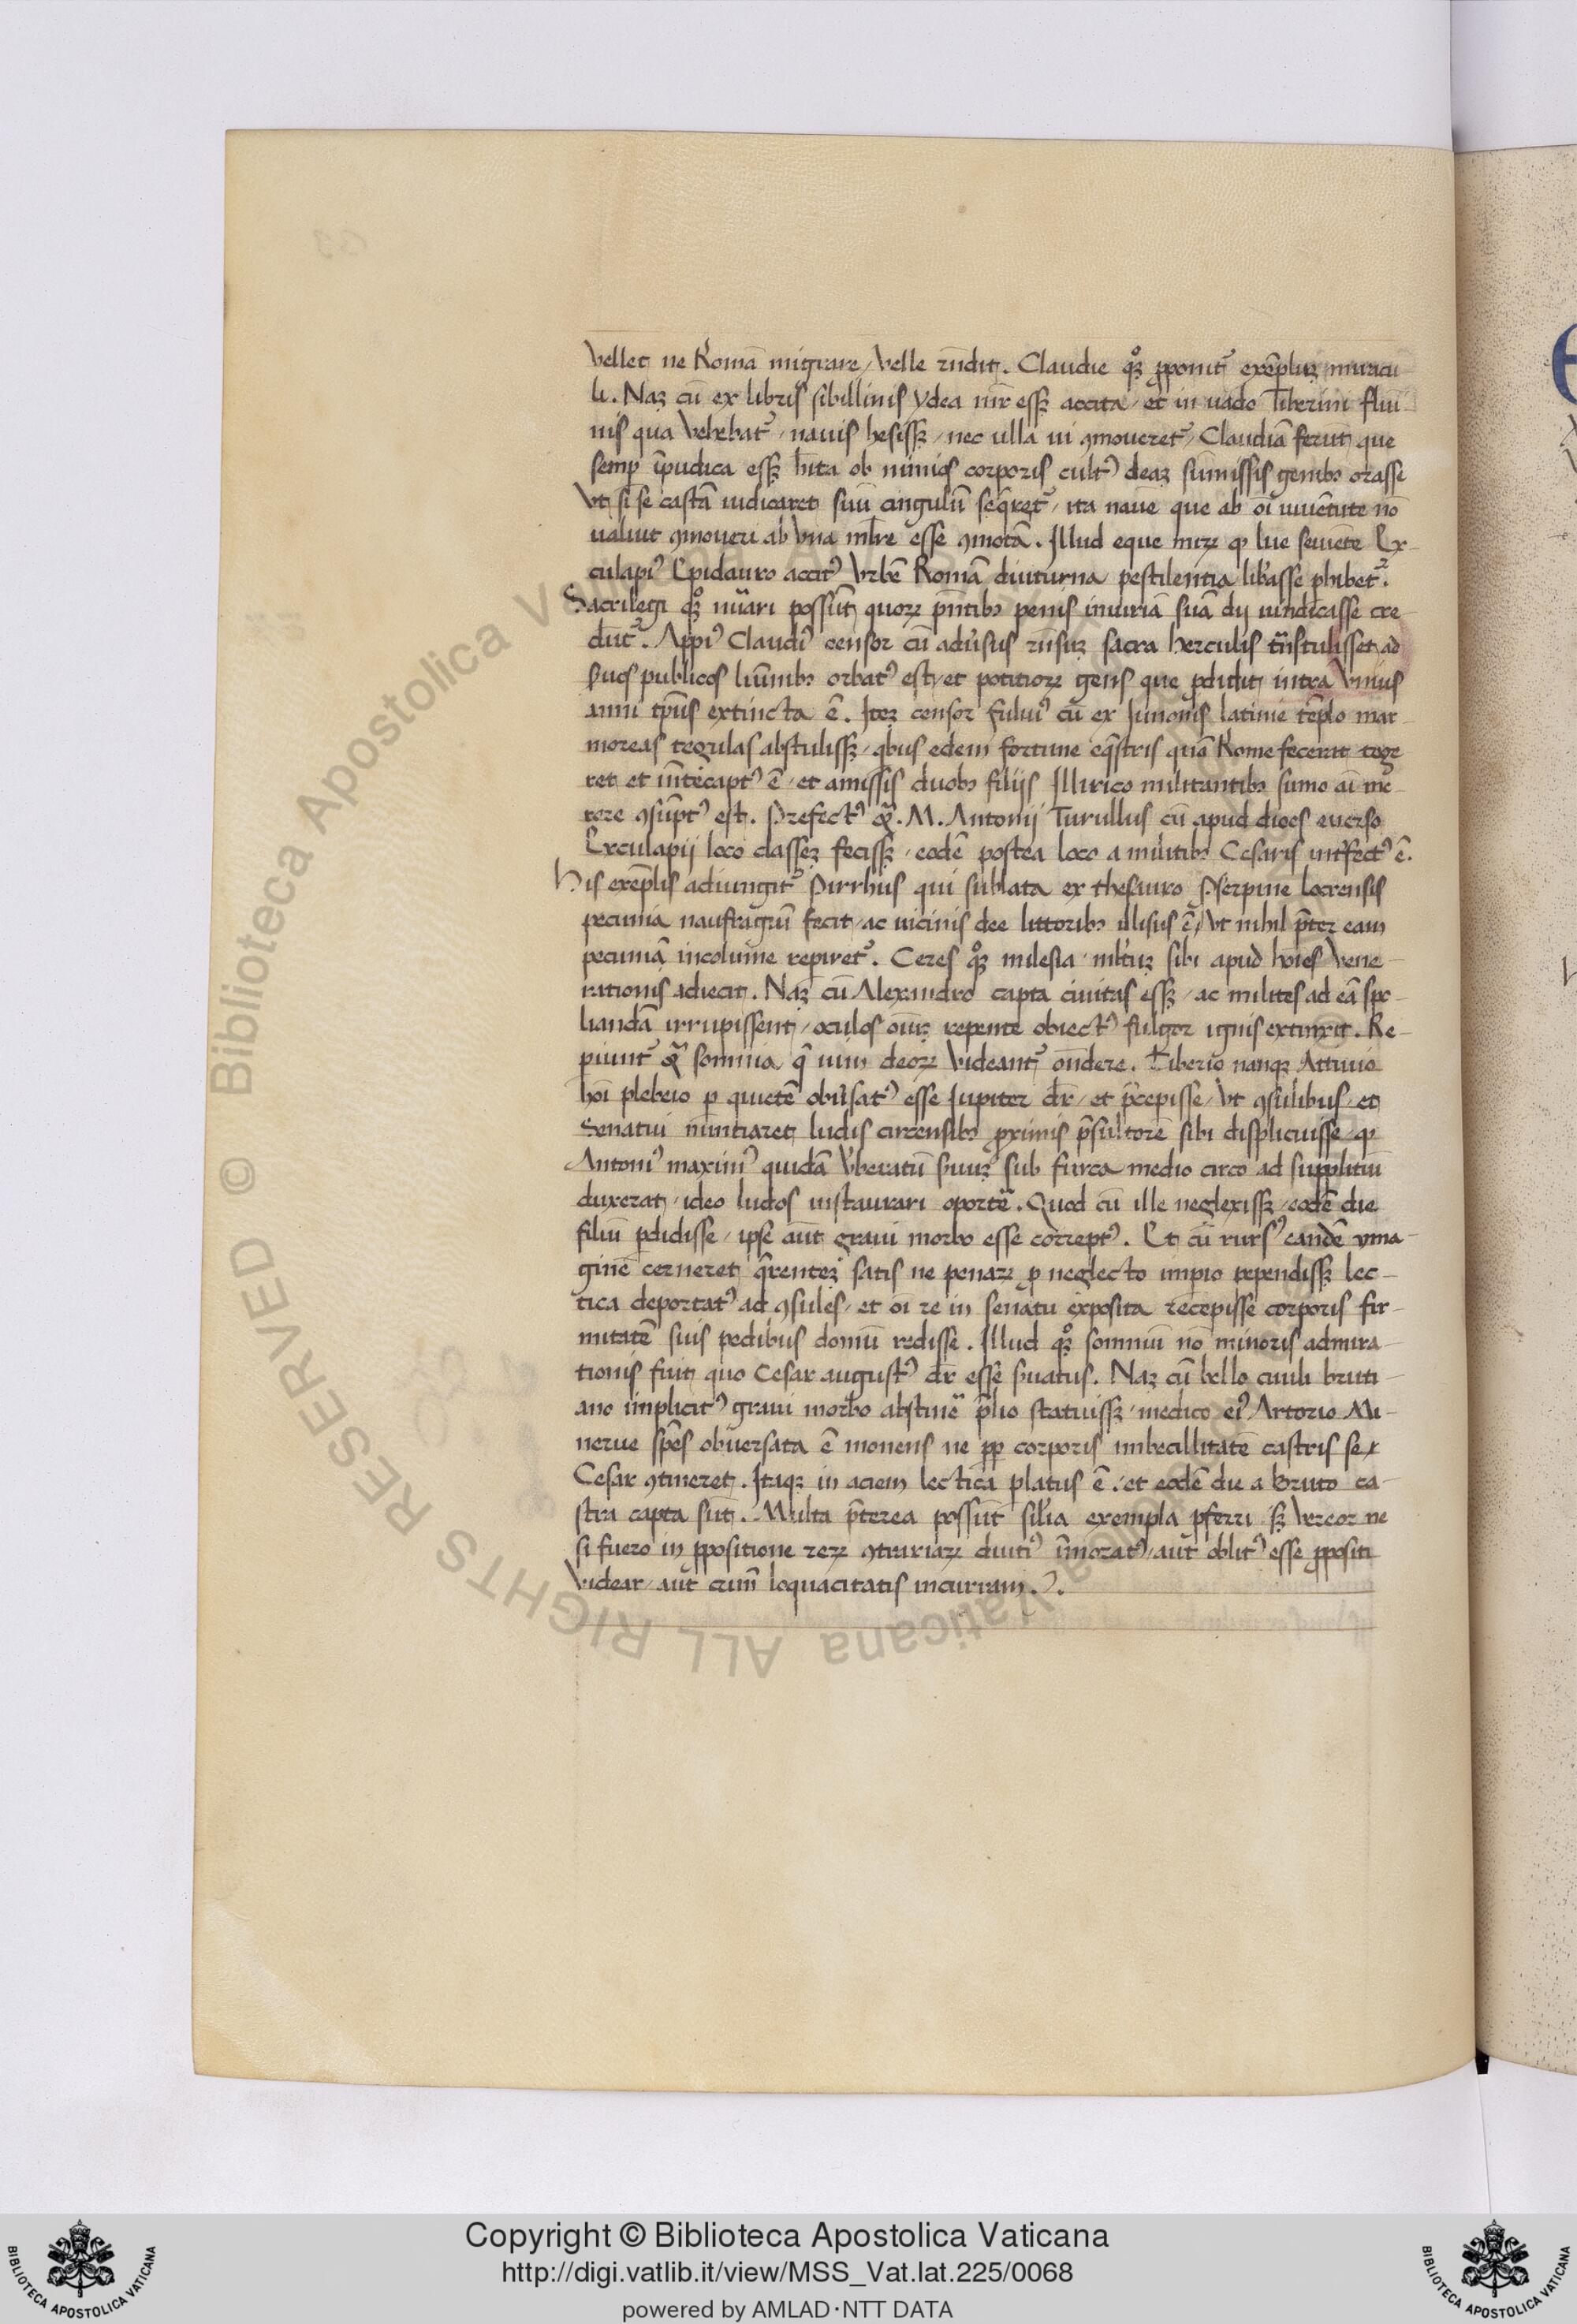 Vellet ne Romā migrare / Velle rn̄dit. Claudie qͦꝫ ꝓponit᷑ exēpluꝫ miracu
li. Naꝫ cū ex libris sibillinis ydea mr̄ essꝫ accita / et in uado Tiberini flui
nis qua Vehebat᷑ / nauis hesissꝫ / nec ulla ui ꝯmoueret᷑ / Claudiā ferūt que
semꝑ īpudica essꝫ hīta ob nimios corporis cultꝰ deaꝫ sūmissis genibꝫ orasse
Vt si se castā iudicaret suū cingulū seq̄ret᷑ / ita nauē que ab oī iuuētute nō
ualuit ꝯmoueri ab Vna mlr̄e esse ꝯmotā. Illud eque miꝝ ꝙ lue seuiēte Ex-
culapiꝰ Epidauro accitꝰ Vrbē Romā diuturna pestilentia lib̓asse ꝑhibet᷑.
Sacrilegi qͦꝫ nūari possūt quoꝝ pn̄tibꝫ penis iniuriā suā dij uindicasse cre
dūt᷑. Appiꝰ Claudiꝰ censor cū adu̓sus rn̄suꝫ sacra herculis trn̄stulisset ad
suos publicos lūinibꝫ orbatꝰ est / et potitioꝝ gens que ꝓdidit intra Vnius
anni tp̄us extincta ē. Iteꝫ censor fuluiꝰ cū ex Iunonis latinie tēplo mar-
moreas tegulas abstulissꝫ / qͥbus edem fortune eq̄stris quā Rome fecerat tege
ret et mēte captꝰ ē / et amissis duobꝫ filijs Illirico militantibꝫ sūmo aī me-
rore ꝯsūptꝰ est. Prefectꝰ qꝫ. M. Antonij Turullus cū apud dices euerso
Exculapij loco classeꝫ fecissꝫ / eodē postea loco a militibꝫ Cesaris int̓fectꝰ ē.
His exēplis adiungit᷑ Pirrhus qui sublata ex thesauro ꝓserpine locrensis
pecunia naufragiū fecit / ac uicinis dee littoribꝫ illisus ē / Vt nihil p̄ter eam
pecuniā incolume repiret᷑. Ceres qͦꝫ milesia / mltuꝫ sibi apud hoīes Vene-
rationis adiecit. Naꝫ cū Alexandro capta ciuitas essꝫ / ac milites ad eā spo-
liandā irrupissent / oculos oīuꝫ repente obiectꝰ fulgor ignis extinxit. Re-
piunt᷑ qꝫ somnia q̄ uim deoꝝ Videant᷑ on̄dere. Tiberio nanqꝫ Attinio
hoī plebeio ꝑ quietē obu̓satꝰ esse Iupiter dr̄ / et p̄cepisse / Vt ꝯsulibus et
Senatui nūntiaret ludis circensibꝫ ꝓximis p̄sultorē sibi displicuisse / ꝙ
Antoniꝰ maximꝰ quidā V̓beratū suuꝫ sub furca medio circo ad supplitiū
duxerat / ideo ludos instaurari oportē. Quod cū ille neglexissꝫ / eodē die
filiū ꝑdidisse / ipse aūt graui morbo esse correptꝰ. Et cū rursꝰ eandē yma-
ginē cerneret q̄renteꝫ satis ne penaꝝ ꝓ neglecto impio pependissꝫ lec-
tica deportatꝰ ad ꝯsules / et oī re in senatu exposita recepisse corporis fir-
mitatē suis pedibus domū redisse. Illud qͦꝫ somniū nō minoris admira-
tionis fuit quo Cesar augustꝰ dr̄ esse suatus. Naꝫ cū bello ciuili bruti-
ano implicitꝰ graui morbo abstinē p̄lio statuissꝫ / medico eiꝰ Artorio Mi-
nerue spēs obuersata ē monens ne ꝓp corporis imbecillitatē castris se
Cesar ꝯtineret. Itaqꝫ in aciem lectica ꝓlatus ē / et eodē die a bruto ca-
stra capta sūt. Multa p̄terea possūt sil̓ia exempla ꝓferri sꝫ Vereor ne
si fuero in ꝓpositione reꝝ ꝯtrariaꝝ diutiꝰ īmoratꝰ / aut oblitꝰ esse ꝓpositi
Videar / aut crimē loquacitatis incurram.
© Biblioteca Apostolica Vaticana ALL RIGHTS RESERVED
Copyright © Biblioteca Apostolica Vaticana
http://digi.vatlib.it/view/MSS_Vat.lat.225/0068
powered by AMLAD·NTT DATA
BIBLIOTECA APOSTOLICA VATICANA
BIBLIOTECA APOSTOLICA VATICANA